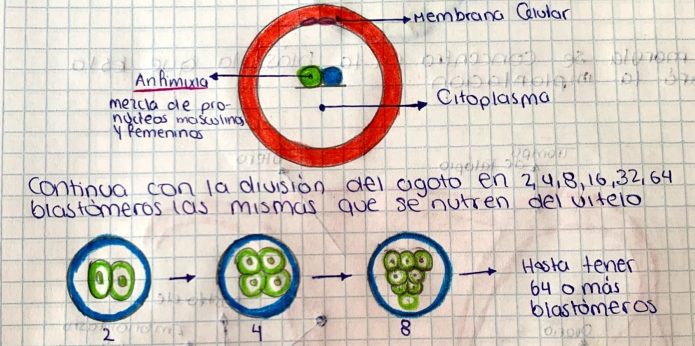 Membrana Celular
Anfimixia
mezcla de pro-
nucleos masculino
y femeninos
Citoplasma
Continua con la división del cigoto en 2,4,8,16,32,64
blastómeros las mismas que se nutren del vitelo
2
4
8
Hasta tener
64 o más
blastómeros